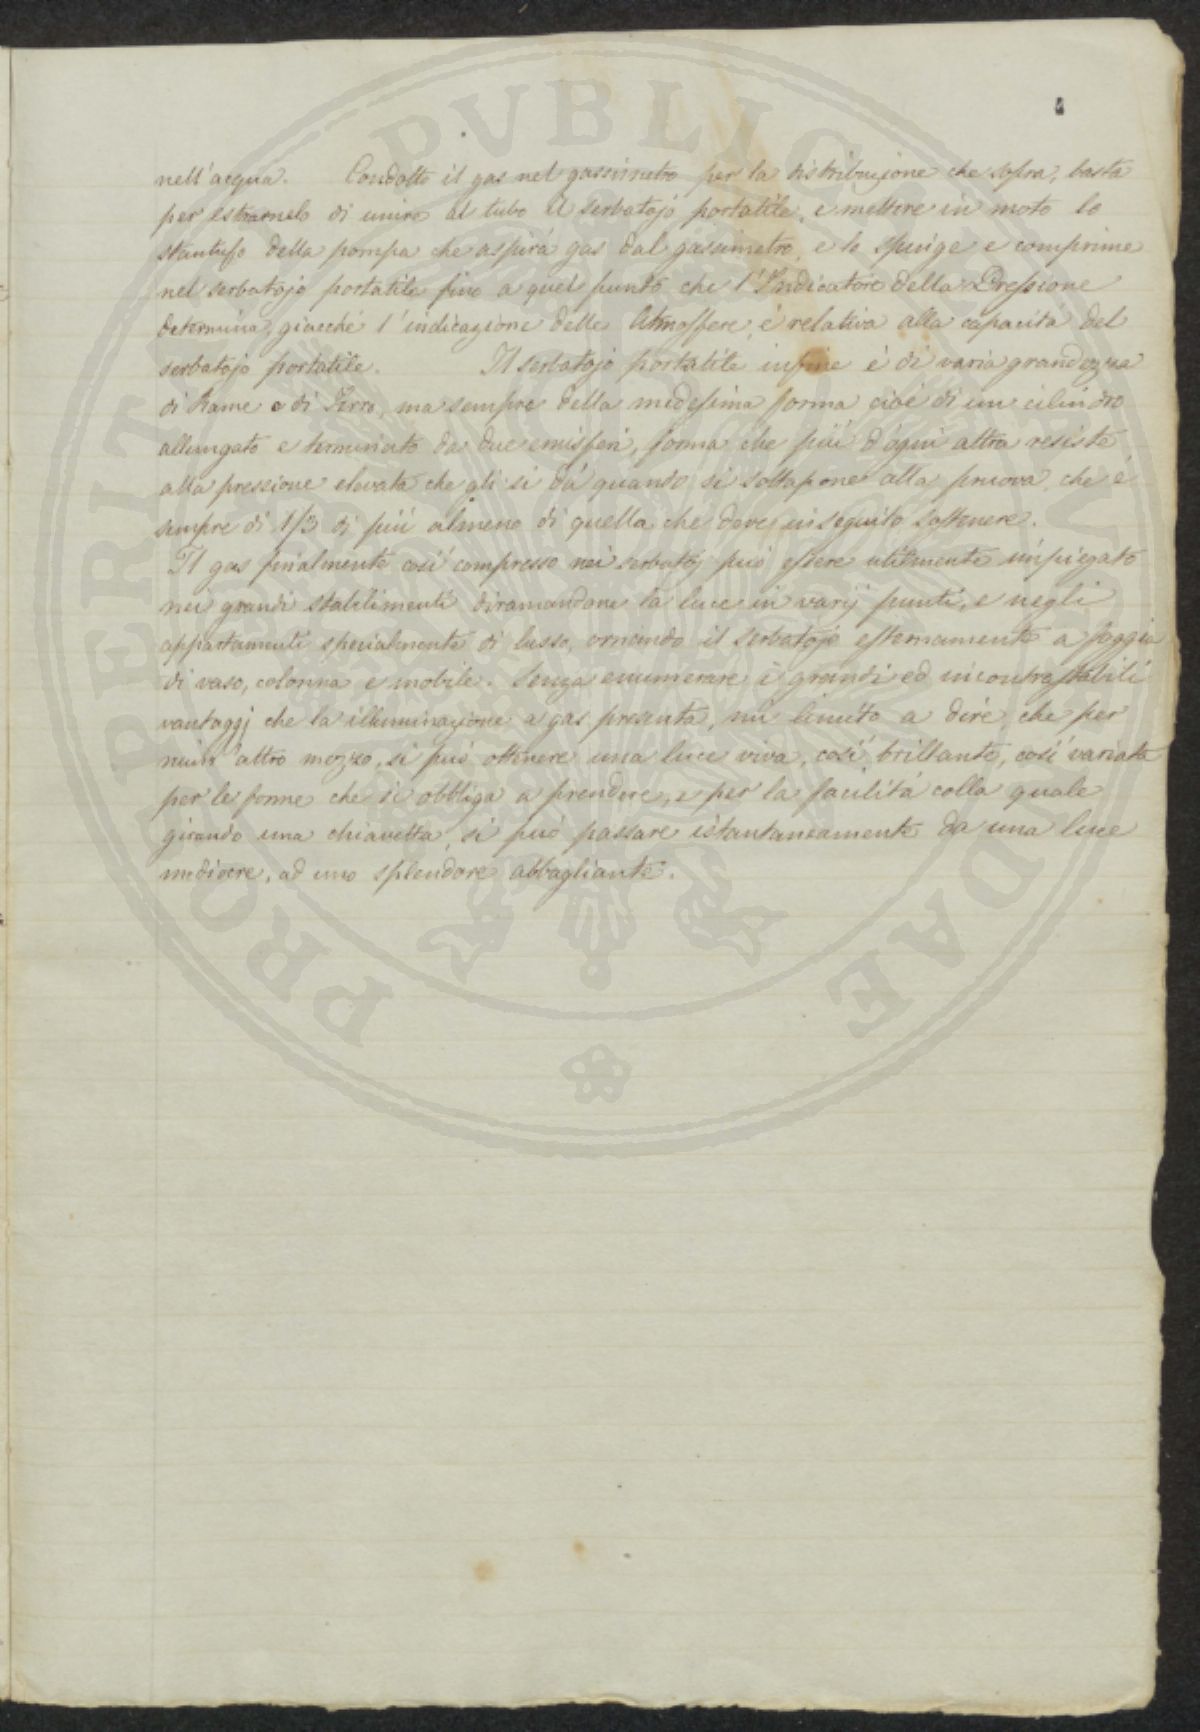 nell'acqua. Condotto il gas nel gassimetro per la distribuzione che sopra, basta
per estrarnelo di unire al tubo il serbatojo portatile, e mettere in moto lo
stantufo della pompa che aspira gas dal gassimetro, e lo spinge e comprime
nel serbatojo portatile fino a quel punto che l'Indicatore della Pressione
determina, giacché l'indicazione delle Atmosfere, é relativa alla capacitá del
serbatojo portatile. Il serbatojo portatile infine é di varia grandezza
di Rame o di Ferro, ma sempre della medesima forma cioé di un cilindro
allungato e terminato da due emisferi, forma che piú d'ogni altra resiste
alla pressione elevata che gli si dá quando si sottapone alla pruova, che é
sempre di 1/3 di piú almeno di quella che deve in seguito sostenere.
Il gas finalmente cosí compresso nei serbatoj puó essere utilmente impiegato
nei grandi stabilimenti diramandone la luce in varij punti, e negli
appartamenti specialmente di lusso, ornando il serbatojo esternamente a foggia
di vaso, colonna e mobile. Senza enumerare i grandi ed incontrastabili
vantaggj che la illuminazione a gas presenta, mi limito a dire che per
niun'altro mezzo, si puó ottenere una luce viva, cosí brillante, cosí variata
per le forme che si obbliga a prendere, e per la facilitá colla quale
girando una chiavetta, si puó passare istantaneamente da una luce
mediocre, ad uno splendore abbagliante.
PROPERITAS PUBLICAE